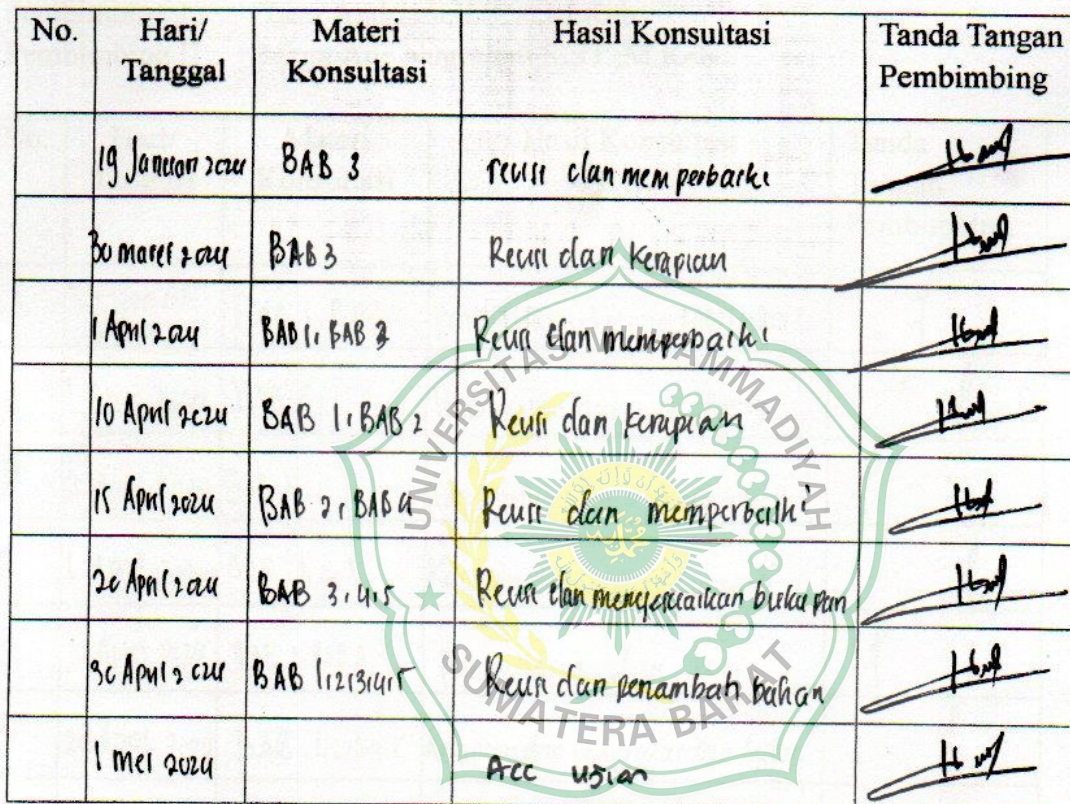 No. Hari/ Materi Hasil Konsultasi Tanda Tangan
Tanggal Konsultasi Pembimbing
19 Januari 2024 BAB 3 revisi dan memperbaiki
30 maret 2024 BAB 3 Revisi dan Kerapian
1 April 2024 BAB 1, BAB 3 Revisi dan memperbaiki
10 April 2024 BAB 1, BAB 2 Revisi dan kerapian
15 April 2024 BAB 2, BAB 4 Revisi dan memperbaiki
20 April 2024 BAB 3,4,5 Revisi dan menyesuaikan buku pan
30 April 2024 BAB 1,2,3,4,5 Revisi dan penambah bahan
1 mei 2024 Acc ujian
UNIVERSITAS MUHAMMADIYAH
SUMATERA BARAT